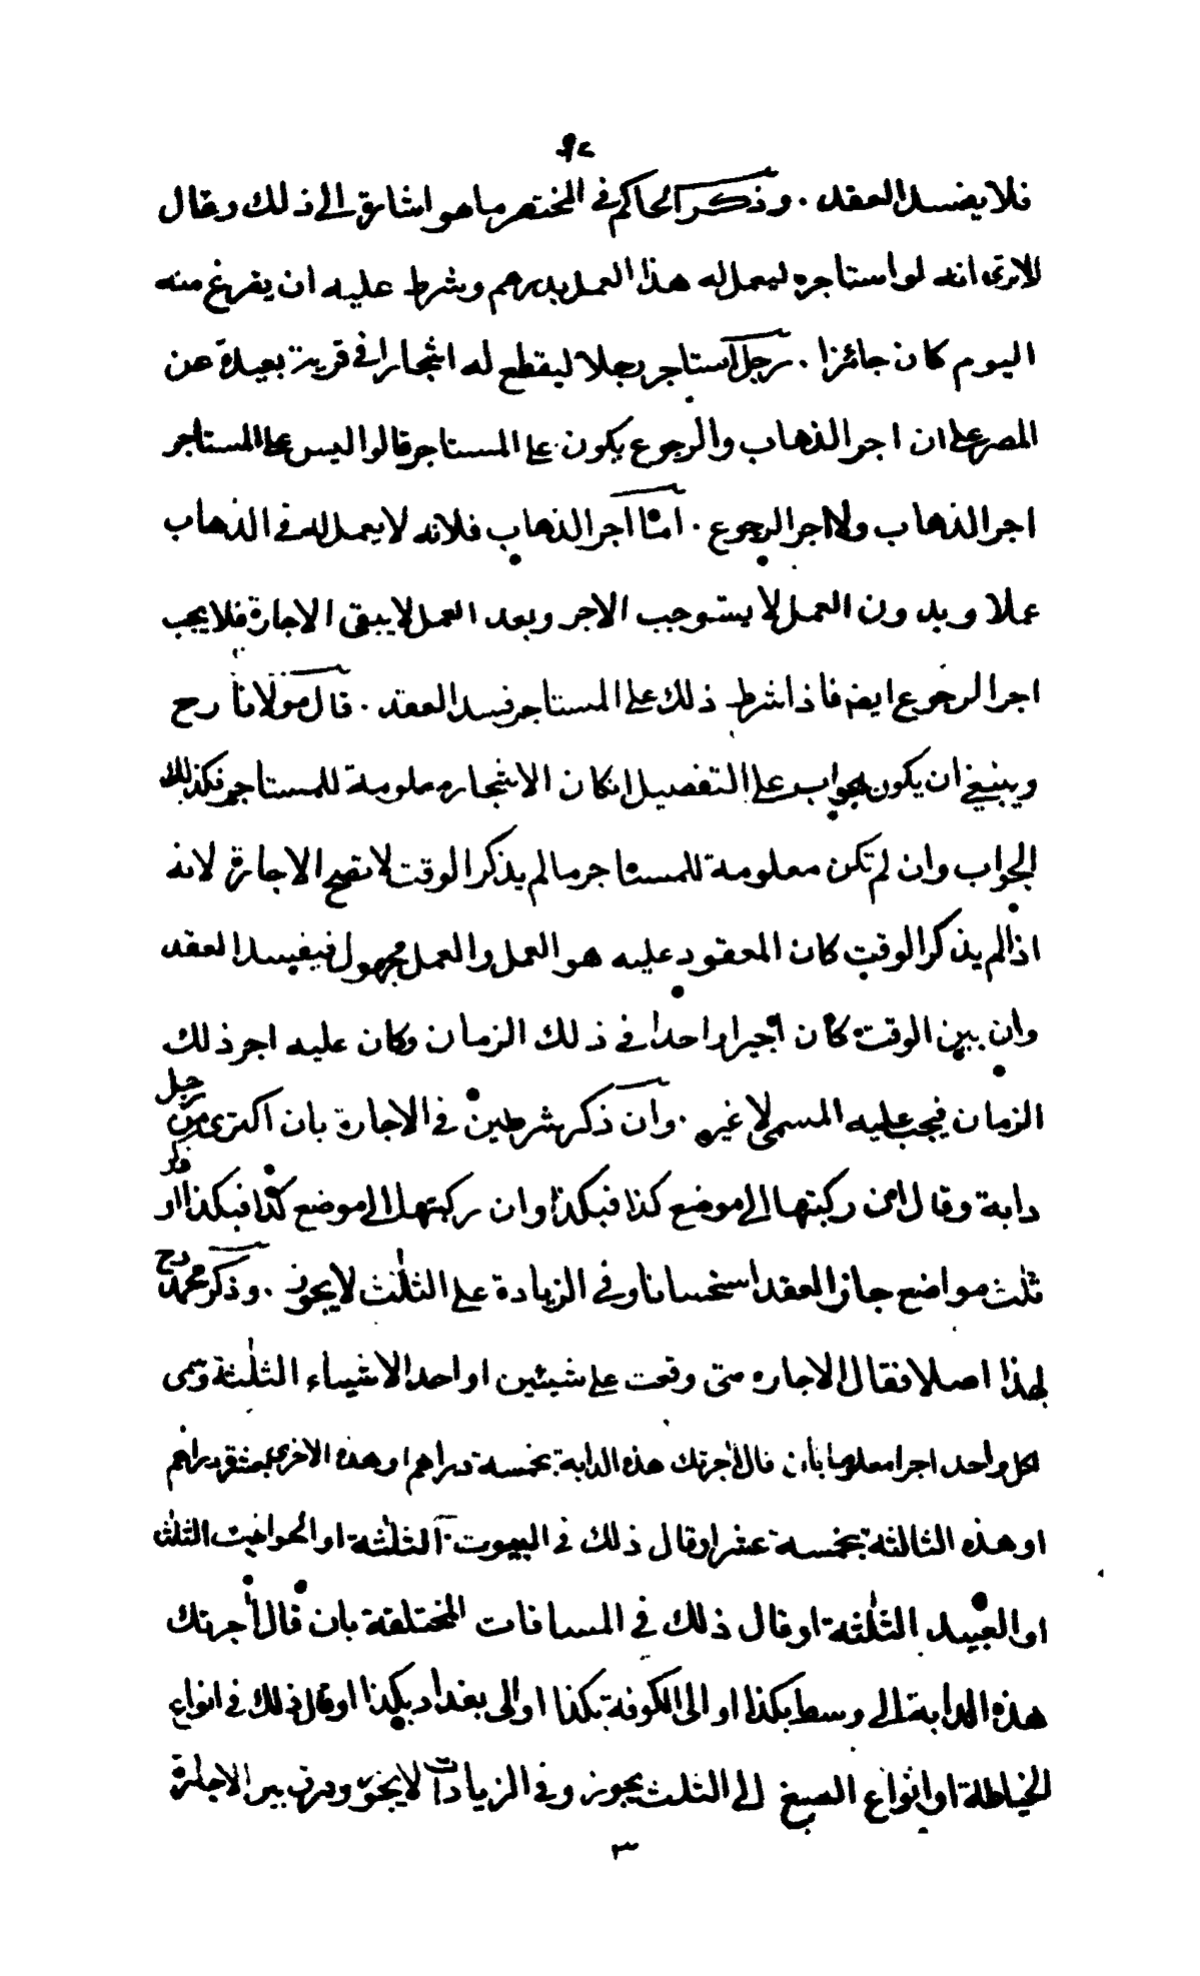 ٩٤
فلا يفسد العقد . وذكر الحاكم في المختصر ما هو اشارة الى ذلك وقال
الا ترى انه لو استاجره ليعمل له هذا العمل بدرهم وشرط عليه ان يفرغ منه
اليوم كان جائزا . رجل استاجر رجلا ليقطع له اشجارا في قرية بعيدة عن
المصر على ان اجر الذهاب والرجوع يكون على المستاجر قالوا ليس على المستاجر
اجر الذهاب ولا اجر الرجوع . اما اجر الذهاب فلانه لا يعمل له في الذهاب
عملا وبدون العمل لا يستوجب الاجر وبعد العمل لا يبقى الاجارة فلا يجب
اجر الرجوع ايضا فاذا شرط ذلك على المستاجر فسد العقد . قال مولانا رح
وينبغي ان يكون جواب على التفصيل ان كان الاشجار معلومة للمستاجر فكذلك
الجواب وان لم تكن معلومة للمستاجر ما لم يذكر الوقت لا تصح الاجارة لانه
اذا لم يذكر الوقت كان المعقود عليه هو العمل والعمل مجهول فيفسد العقد
وان بين الوقت كان اجيرا واحدا في ذلك الزمان وكان عليه اجر ذلك
الزمان فيجب عليه المسمى لا غير . وان ذكر شرطين في الاجارة بان اكترى من رجل
دابة وقال ان ركبتها الى موضع كذا فبكذا وان ركبتها الى موضع كذا فبكذا او
ثلث مواضع جاز العقد استحسانا وفي الزيادة على الثلث لا يجوز . وذكر محمد رح
لهذا اصلا فقال الاجارة متى وقعت على شيئين او احد الاشياء الثلثة وسمى
لكل واحد اجرا معلوما بان قال اجرتك هذه الدابة بخمسة دراهم او هذه الاخرى بعشرة دراهم
او هذه الثالثة بخمسة عشر او قال ذلك في البيوت الثلثة او الحوانيت الثلث
او العبيد الثلثة او قال ذلك في المسافات المختلفة بان قال اجرتك
هذه الدابة الى وسط بكذا او الى الكوفة بكذا او الى بغداد بكذا او قال ذلك في انواع
الخياطة او انواع الصبغ الى الثلث يجوز وفي الزيادات لا يجوز وفرق بين الاجارة
٣